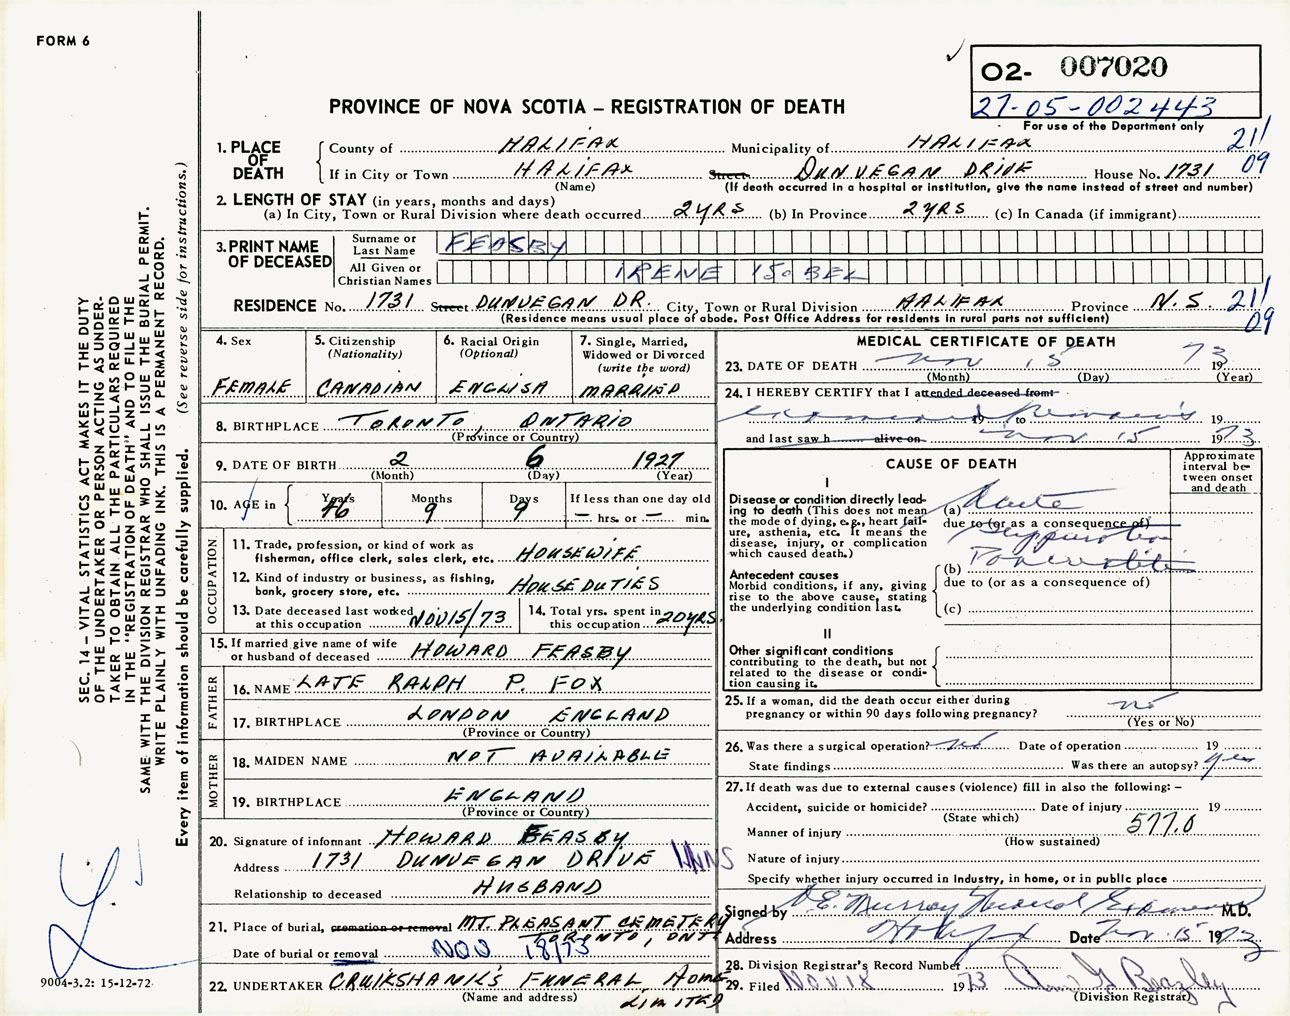 FORM 6
02- 007020
27-05-002443
For use of the Department only
PROVINCE OF NOVA SCOTIA – REGISTRATION OF DEATH
1. PLACE OF DEATH
County of HALIFAX Municipality of HALIFAX 211
If in City or Town HALIFAX Street DUNVEGAN DRIVE House No. 1731 09
(Name) (If death occurred in a hospital or institution, give the name instead of street and number)
2. LENGTH OF STAY (in years, months and days)
(a) In City, Town or Rural Division where death occurred 2 YRS (b) In Province 2 YRS (c) In Canada (if immigrant)
3. PRINT NAME OF DECEASED
Surname or Last Name FEASBY
All Given or Christian Names IRENE ISOBEL
RESIDENCE No. 1731 Street DUNVEGAN DR. City, Town or Rural Division HALIFAX Province N.S. 211
(Residence means usual place of abode. Post Office Address for residents in rural parts not sufficient) 09
4. Sex
FEMALE
5. Citizenship
(Nationality)
CANADIAN
6. Racial Origin
(Optional)
ENGLISH
7. Single, Married,
Widowed or Divorced
(write the word)
MARRIED
8. BIRTHPLACE TORONTO, ONTARIO
(Province or Country)
9. DATE OF BIRTH 2 6 1927
(Month) (Day) (Year)
10. AGE in Years 46 Months 9 Days 9 If less than one day old
— hrs. or — min.
OCCUPATION
11. Trade, profession, or kind of work as
fisherman, office clerk, sales clerk, etc. HOUSEWIFE
12. Kind of industry or business, as fishing,
bank, grocery store, etc. HOUSEDUTIES
13. Date deceased last worked
at this occupation NOV 15/73
14. Total yrs. spent in
this occupation 20 YRS.
15. If married give name of wife
or husband of deceased HOWARD FEASBY
FATHER
16. NAME LATE RALPH P. FOX
17. BIRTHPLACE LONDON ENGLAND
(Province or Country)
MOTHER
18. MAIDEN NAME NOT AVAILABLE
19. BIRTHPLACE ENGLAND
(Province or Country)
20. Signature of informant HOWARD FEASBY
Address 1731 DUNVEGAN DRIVE
Relationship to deceased HUSBAND
21. Place of burial, cremation or removal MT. PLEASANT CEMETERY
TORONTO, ONT
Date of burial or removal NOV 18/73
22. UNDERTAKER CRUIKSHANK'S FUNERAL HOME
(Name and address) LIMITED
MEDICAL CERTIFICATE OF DEATH
23. DATE OF DEATH Nov 15 1973
(Month) (Day) (Year)
24. I HEREBY CERTIFY that I attended deceased from
examined 19 to remains 19
and last saw h alive on Nov 15 1973
CAUSE OF DEATH
Approximate
interval be-
tween onset
and death
I
Disease or condition directly lead-
ing to death (This does not mean
the mode of dying, e.g., heart fail-
ure, asthenia, etc. It means the
disease, injury, or complication
which caused death.)
(a) Acute
due to (or as a consequence of)
Suppurative
(b) Pancreatitis
due to (or as a consequence of)
(c)
Antecedent causes
Morbid conditions, if any, giving
rise to the above cause, stating
the underlying condition last.
II
Other significant conditions
contributing to the death, but not
related to the disease or condi-
tion causing it.
25. If a woman, did the death occur either during
pregnancy or within 90 days following pregnancy? no
(Yes or No)
26. Was there a surgical operation? no Date of operation 19
State findings Was there an autopsy? yes
27. If death was due to external causes (violence) fill in also the following: –
Accident, suicide or homicide? Date of injury 19
(State which)
Manner of injury 577.0
(How sustained)
Nature of injury
Specify whether injury occurred in industry, in home, or in public place
Signed by D.E. Murray Medical Examiner M.D.
Address Halifax Date Nov. 15 1973
28. Division Registrar's Record Number
29. Filed NOV 18 1973
(Division Registrar)
SEC. 14 – VITAL STATISTICS ACT MAKES IT THE DUTY
OF THE UNDERTAKER OR PERSON ACTING AS UNDER-
TAKER TO OBTAIN ALL THE PARTICULARS REQUIRED
IN THE "REGISTRATION OF DEATH" AND TO FILE THE
SAME WITH THE DIVISION REGISTRAR WHO SHALL ISSUE THE BURIAL PERMIT.
WRITE PLAINLY WITH UNFADING INK. THIS IS A PERMANENT RECORD.
Every item of information should be carefully supplied. (See reverse side for instructions.)
9004-3.2: 15-12-72